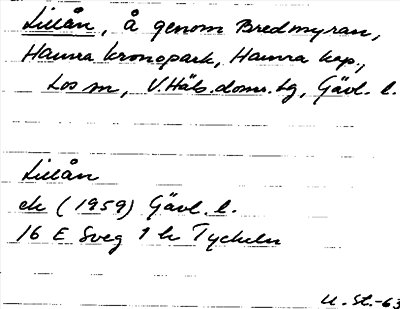 Lillån, å genom Bredmyran,
Hamra kronopark, Hamra kap.,
Los sn, V.Häls.doms.hg, Gävl. l.
Lillån
ek (1959) Gävl. l.
16 E Sveg 1 h Tyckeln
U. St.-63